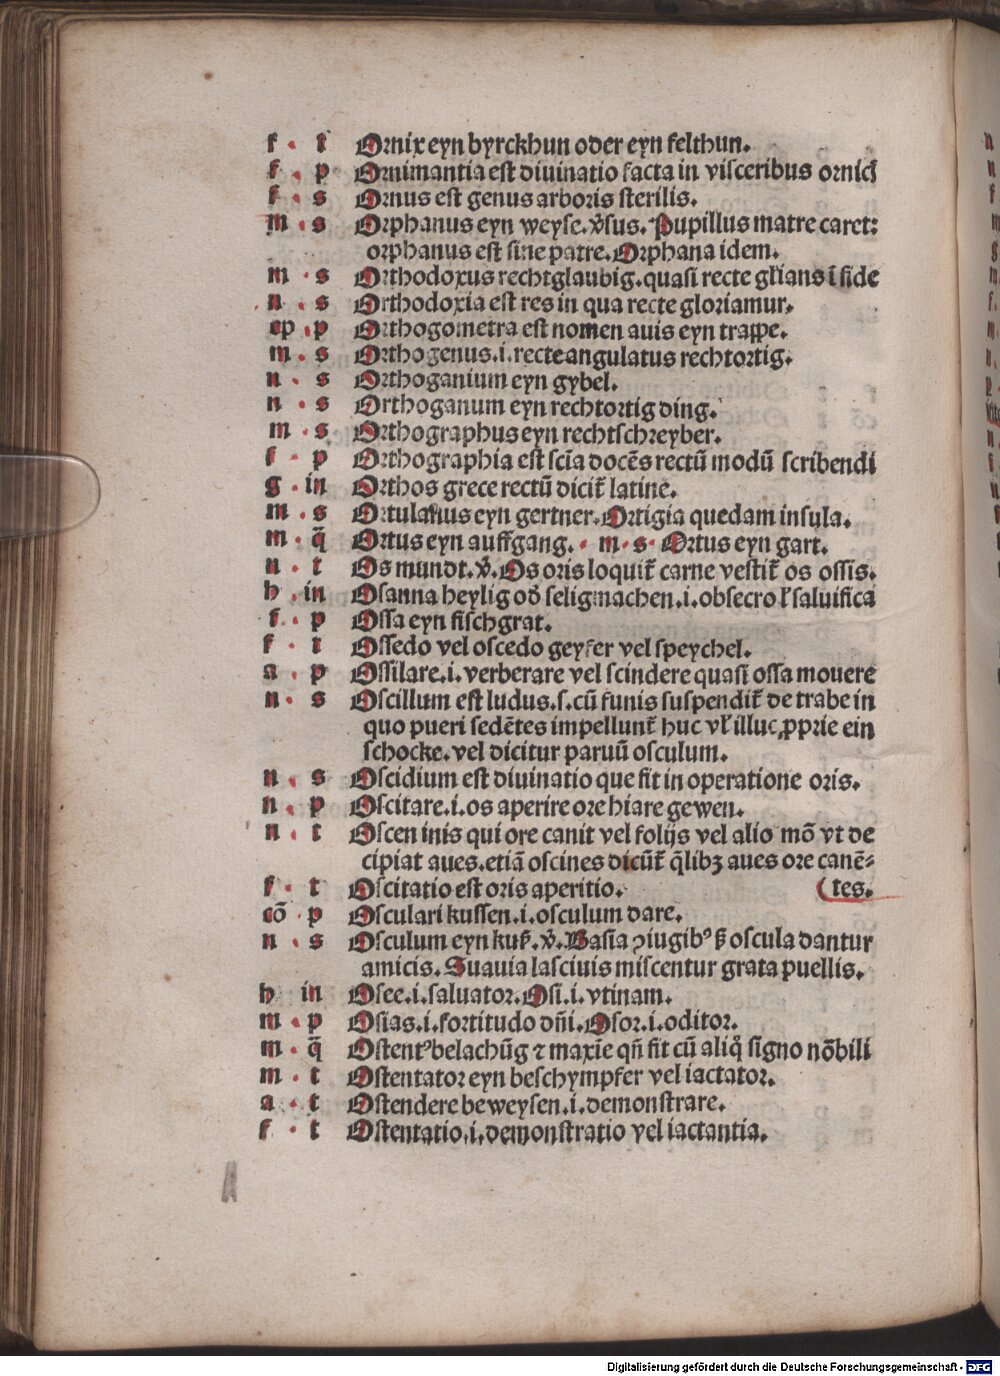 f · t Ornix eyn byrckhun oder eyn felthun.
f · p Ornimantia est diuinatio facta in visceribus ornici
f · s Ornus est genus arboris sterilis.
m · s Orphanus eyn weyse. v̉sus. Pupillus matre caret:
orphanus est sine patre. Orphana idem.
m · s Orthodoxus rechtglaubig. quasi recte glians ī fide
n · s Orthodoxia est res in qua recte gloriamur.
ep · p Orthogometra est nomen auis eyn trappe.
m · s Orthogenus .i. recteangulatus rechtortig.
n · s Orthoganium eyn gybel.
n · s Orthoganum eyn rechtortig ding.
m · s Orthographus eyn rechtschreyber.
f · p Orthographia est scīa docēs rectū modū scribendi
g · in Orthos grece rectū dicit̃ latine.
m · s Ortulanus eyn gertner. Ortigia quedam insula.
m · q̄ Ortus eyn auffgang. · m · s · Ortus eyn gart.
n · t Os mundt. v̉. Os oris loquit̃ carne vestit̃ os ossis.
h · in Osanna heylig od̄ seligmachen .i. obsecro ł saluifica
f · p Ossa eyn fischgrat.
f · t Ossedo vel oscedo geyfer vel speychel.
a · p Ossilare .i. verberare vel scindere quasi ossa mouere
n · s Oscillum est ludus .s. cū funis suspendit̃ de trabe in
quo pueri sedētes impellunt̃ huc vł illuc, ꝓprie ein
schocke. vel dicitur paruū osculum.
n · s Oscidium est diuinatio que fit in operatione oris.
n · p Oscitare .i. os aperire ore hiare gewen.
n · t Oscen inis qui ore canit vel folijs vel alio mō vt de
cipiat aues. etiā oscines dicūt̃ q̄libꝫ aues ore canē-
f · t Oscitatio est oris aperitio. (tes.
cō · p Osculari kussen .i. osculum dare.
n · s Osculum eyn kuß. v̉. Basia ꝯiugibꝰ ß oscula dantur
amicis. Suauia lasciuis miscentur grata puellis.
h in Osee .i. saluator. Osi .i. vtinam.
m · p Osias .i. fortitudo dn̄i. Osor .i. oditor.
m · q̄ Ostentꝰ belachūg ⁊ maxīe qn̄ fit cū aliq̊ signo nōbili
m · t Ostentator eyn beschympfer vel iactator.
a · t Ostendere beweysen .i. demonstrare.
f · t Ostentatio .i. demonstratio vel iactantia.
Digitalisierung gefördert durch die Deutsche Forschungsgemeinschaft - DFG